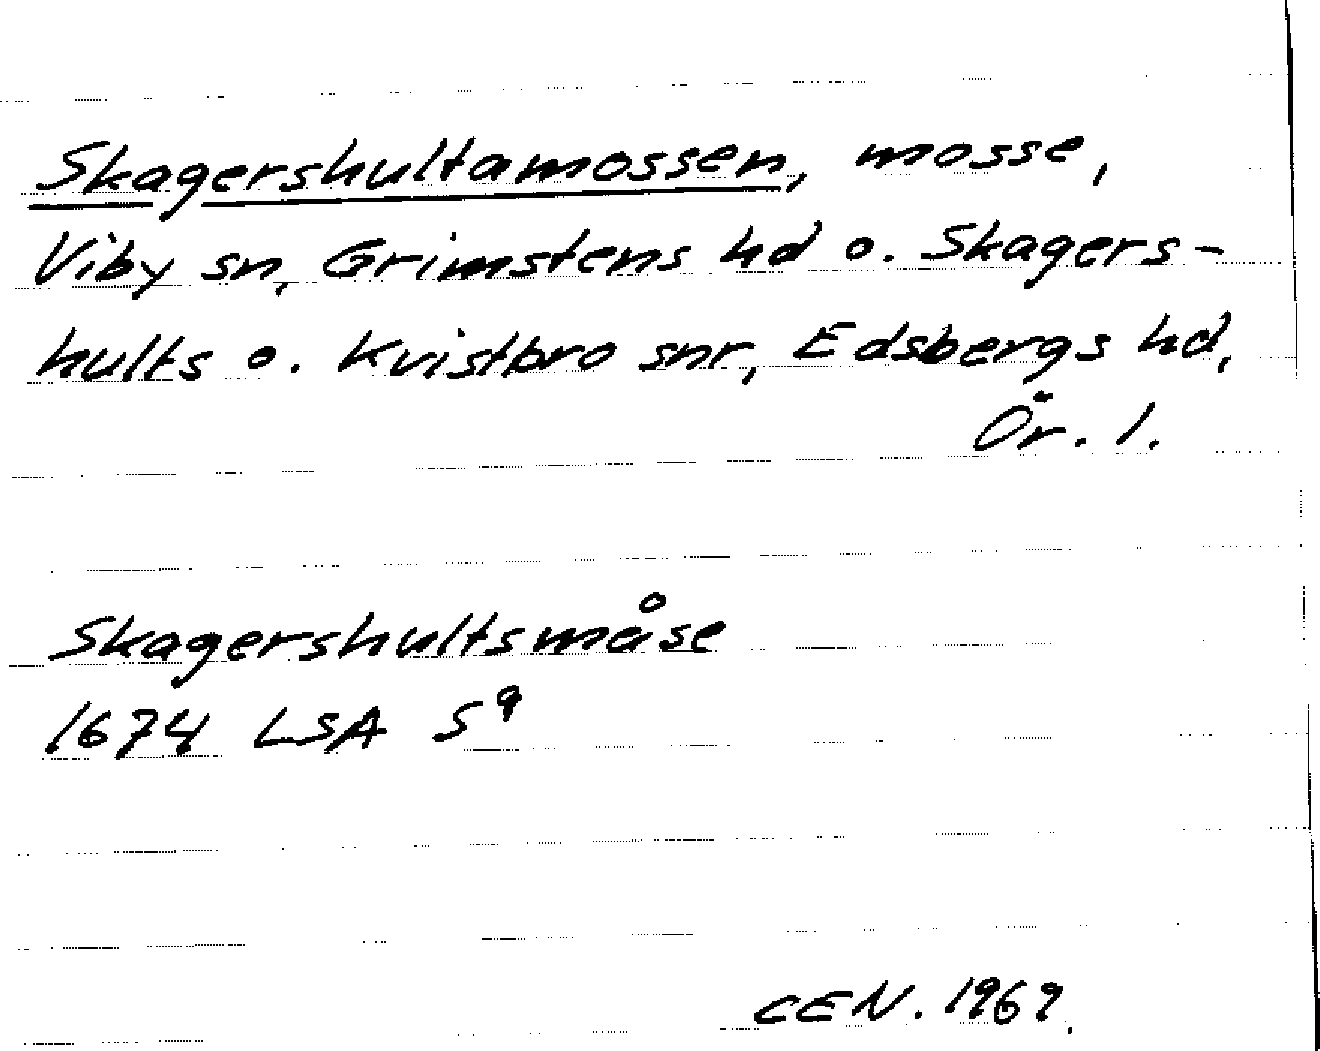 Skagershultamossen, mosse,
Viby sn, Grimstens hd o. Skagers-
hults o. Kvistbro snr, Edsbergs hd,
Ör. l.
Skagershultsmåse
1674 LSA S⁹
CEN. 1969.